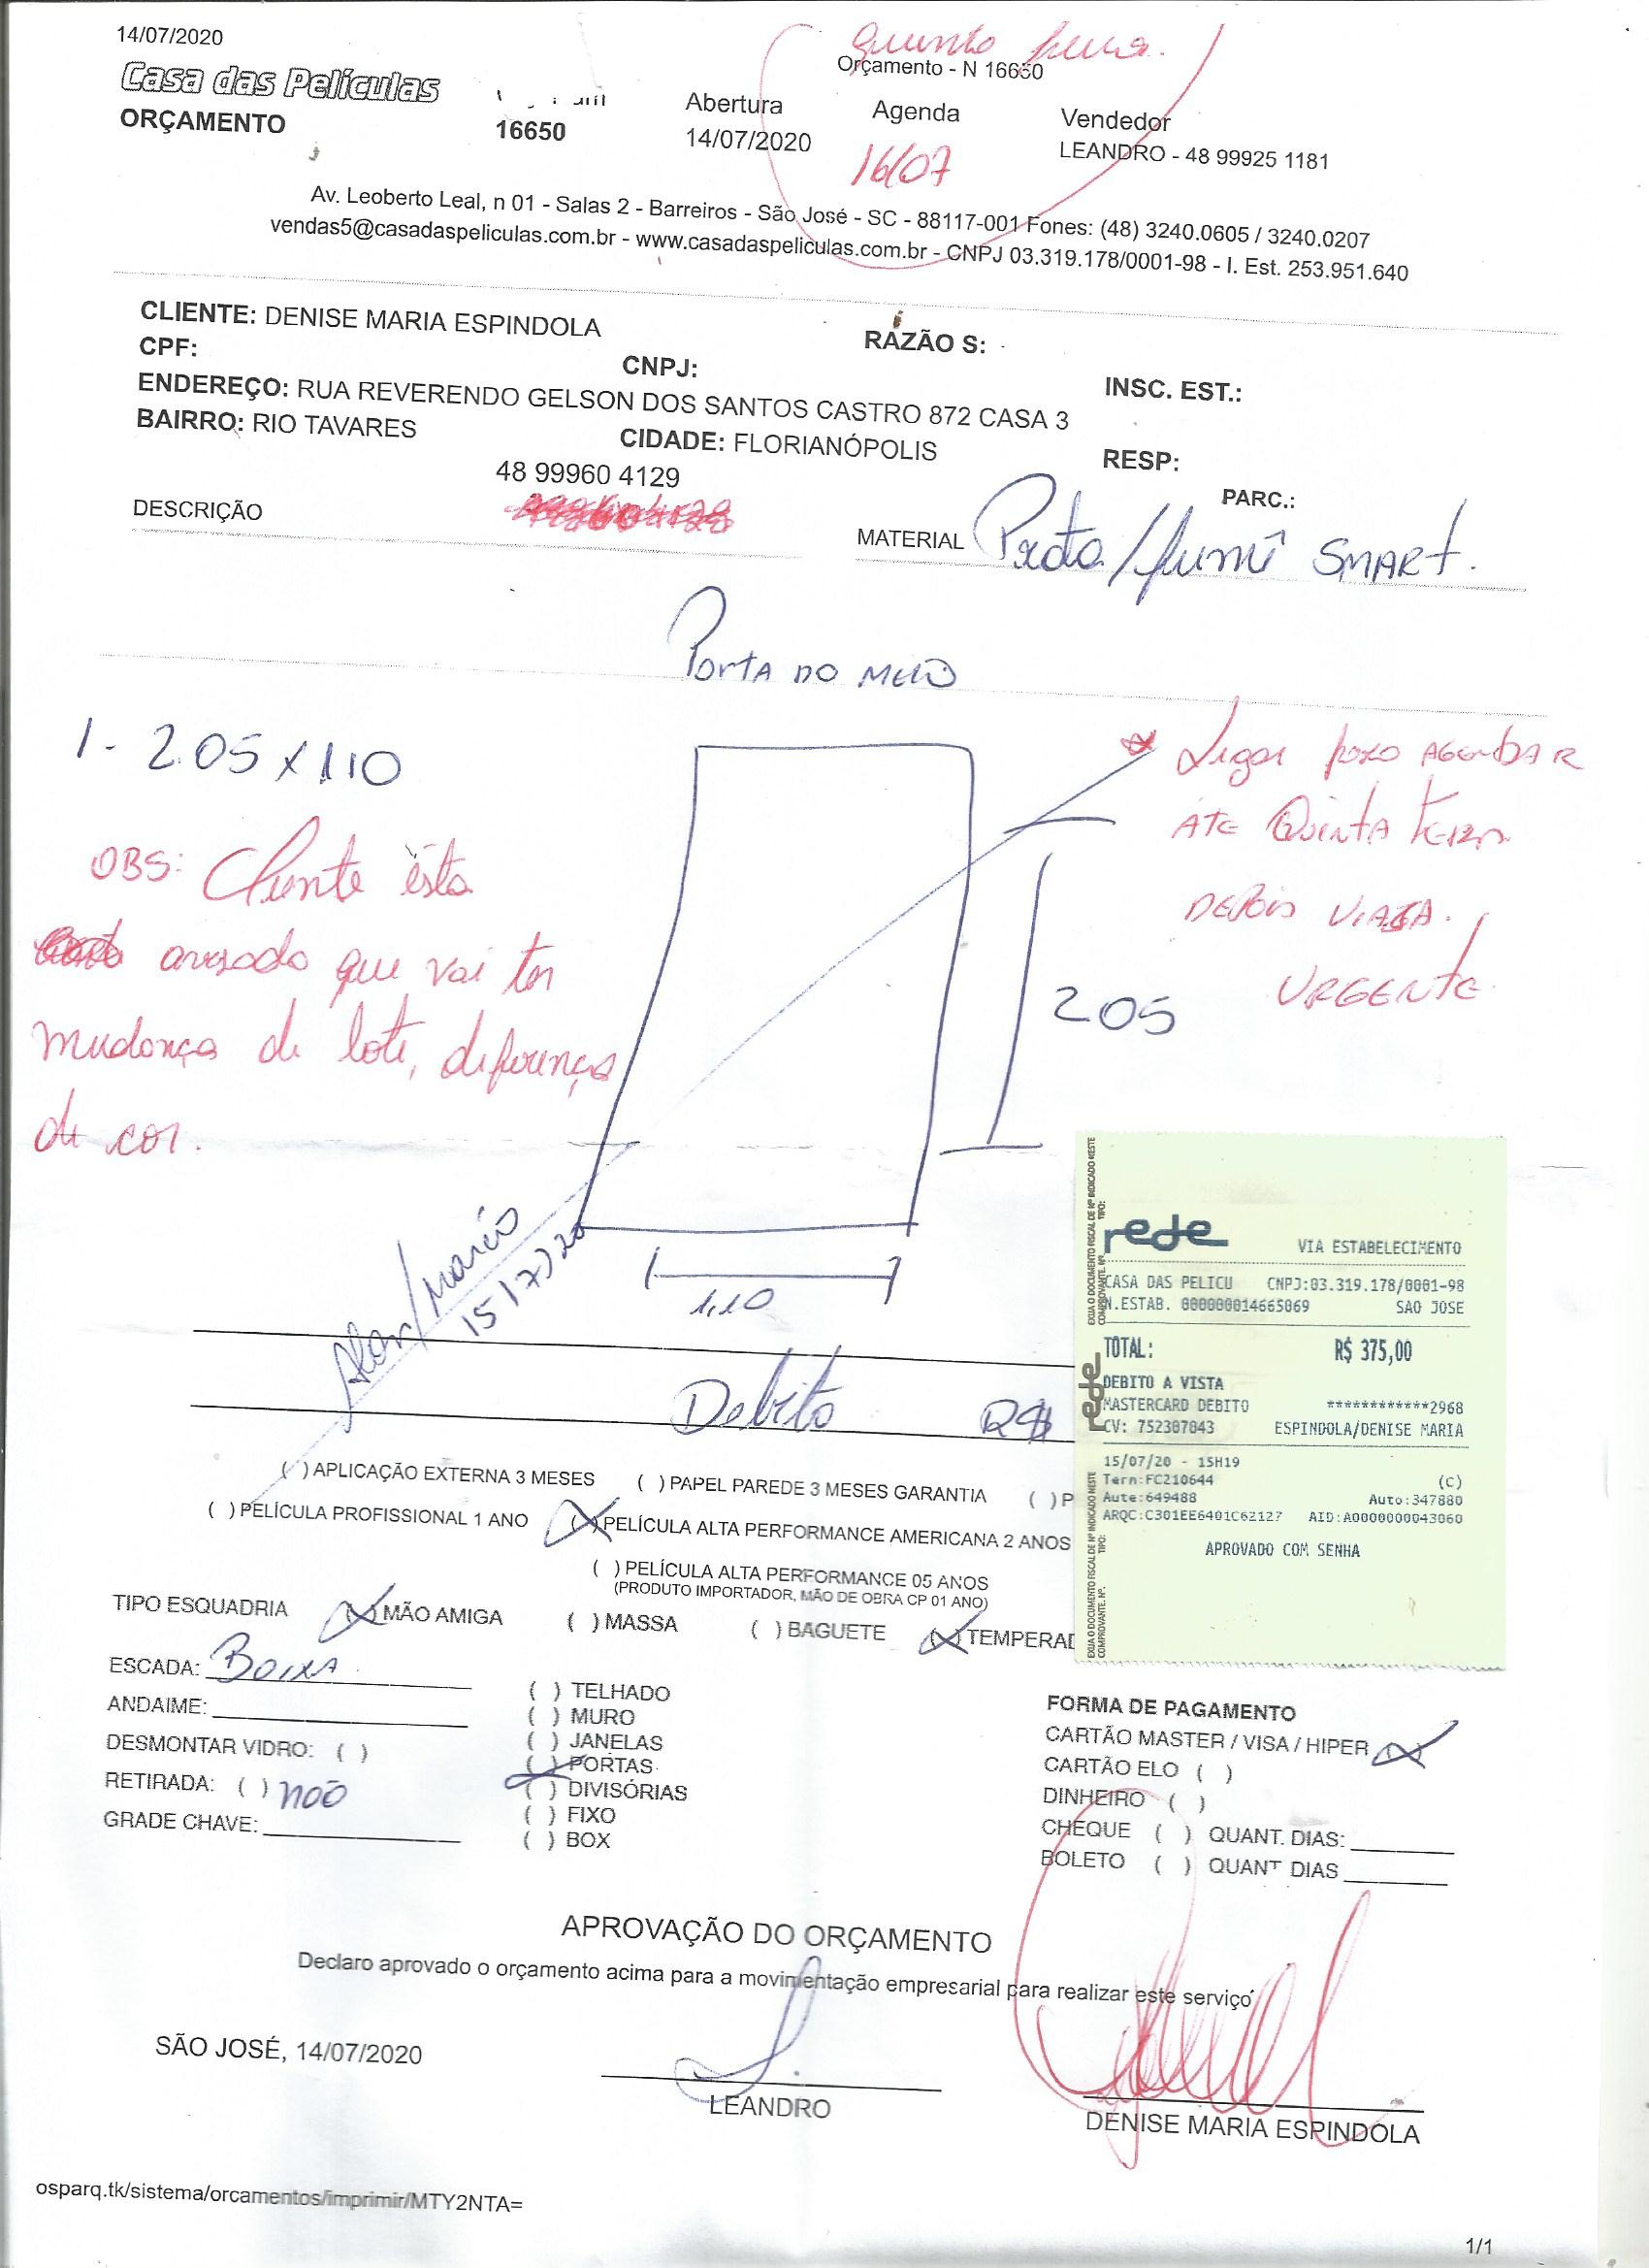 14/07/2020
quinta feira.
Orçamento - N 16650
Casa das Películas
ORÇAMENTO
16650
Abertura
14/07/2020
Agenda
16/07
Vendedor
LEANDRO - 48 99925 1181
Av. Leoberto Leal, n 01 - Salas 2 - Barreiros - São José - SC - 88117-001 Fones: (48) 3240.0605 / 3240.0207
vendas5@casadaspeliculas.com.br - www.casadaspeliculas.com.br - CNPJ 03.319.178/0001-98 - I. Est. 253.951.640
CLIENTE: DENISE MARIA ESPINDOLA
RAZÃO S:
CPF:
CNPJ:
INSC. EST.:
ENDEREÇO: RUA REVERENDO GELSON DOS SANTOS CASTRO 872 CASA 3
BAIRRO: RIO TAVARES
CIDADE: FLORIANÓPOLIS
RESP:
48 99960 4129
PARC.:
DESCRIÇÃO
MATERIAL Prata/fumê SMART.
PORTA DO MEIO
1 - 2.05 x 1.10
* Ligar para AGENDAR
ATE QUINTA FEIRA
DEPOIS VIAJA.
URGENTE
OBS: Cliente ésta
avisado que vai ter
mudança de lote, diferença
de cor.
205
1,10
Alan/Marcio
15/7/20
Debito R$
rede
VIA ESTABELECIMENTO
CASA DAS PELICU CNPJ:03.319.178/0001-98
N.ESTAB. 000000014665069 SAO JOSE
TOTAL: R$ 375,00
DEBITO A VISTA
MASTERCARD DEBITO ************2968
CV: 752307043 ESPINDOLA/DENISE MARIA
15/07/20 - 15H19
Term:FC210644 (C)
Aute:649488 Auto:347880
ARQC:C301EE6401C62127 AID:A0000000043060
APROVADO COM SENHA
rede
EXIJA O DOCUMENTO FISCAL DE Nº INDICADO NESTE
COMPROVANTE. Nº. TIPO:
( ) APLICAÇÃO EXTERNA 3 MESES ( ) PAPEL PAREDE 3 MESES GARANTIA ( ) P
( ) PELÍCULA PROFISSIONAL 1 ANO (X) PELÍCULA ALTA PERFORMANCE AMERICANA 2 ANOS
( ) PELÍCULA ALTA PERFORMANCE 05 ANOS
(PRODUTO IMPORTADOR, MÃO DE OBRA CP 01 ANO)
TIPO ESQUADRIA (X) MÃO AMIGA ( ) MASSA ( ) BAGUETE (X) TEMPERAD
ESCADA: Boixa
ANDAIME:
DESMONTAR VIDRO: ( )
RETIRADA: ( ) não
GRADE CHAVE:
( ) TELHADO
( ) MURO
( ) JANELAS
(X) PORTAS
( ) DIVISÓRIAS
( ) FIXO
( ) BOX
FORMA DE PAGAMENTO
CARTÃO MASTER / VISA / HIPER (X)
CARTÃO ELO ( )
DINHEIRO ( )
CHEQUE ( ) QUANT. DIAS:
BOLETO ( ) QUANT DIAS
APROVAÇÃO DO ORÇAMENTO
Declaro aprovado o orçamento acima para a movimentação empresarial para realizar este serviço
SÃO JOSÉ, 14/07/2020
LEANDRO
DENISE MARIA ESPINDOLA
osparq.tk/sistema/orcamentos/imprimir/MTY2NTA=
1/1